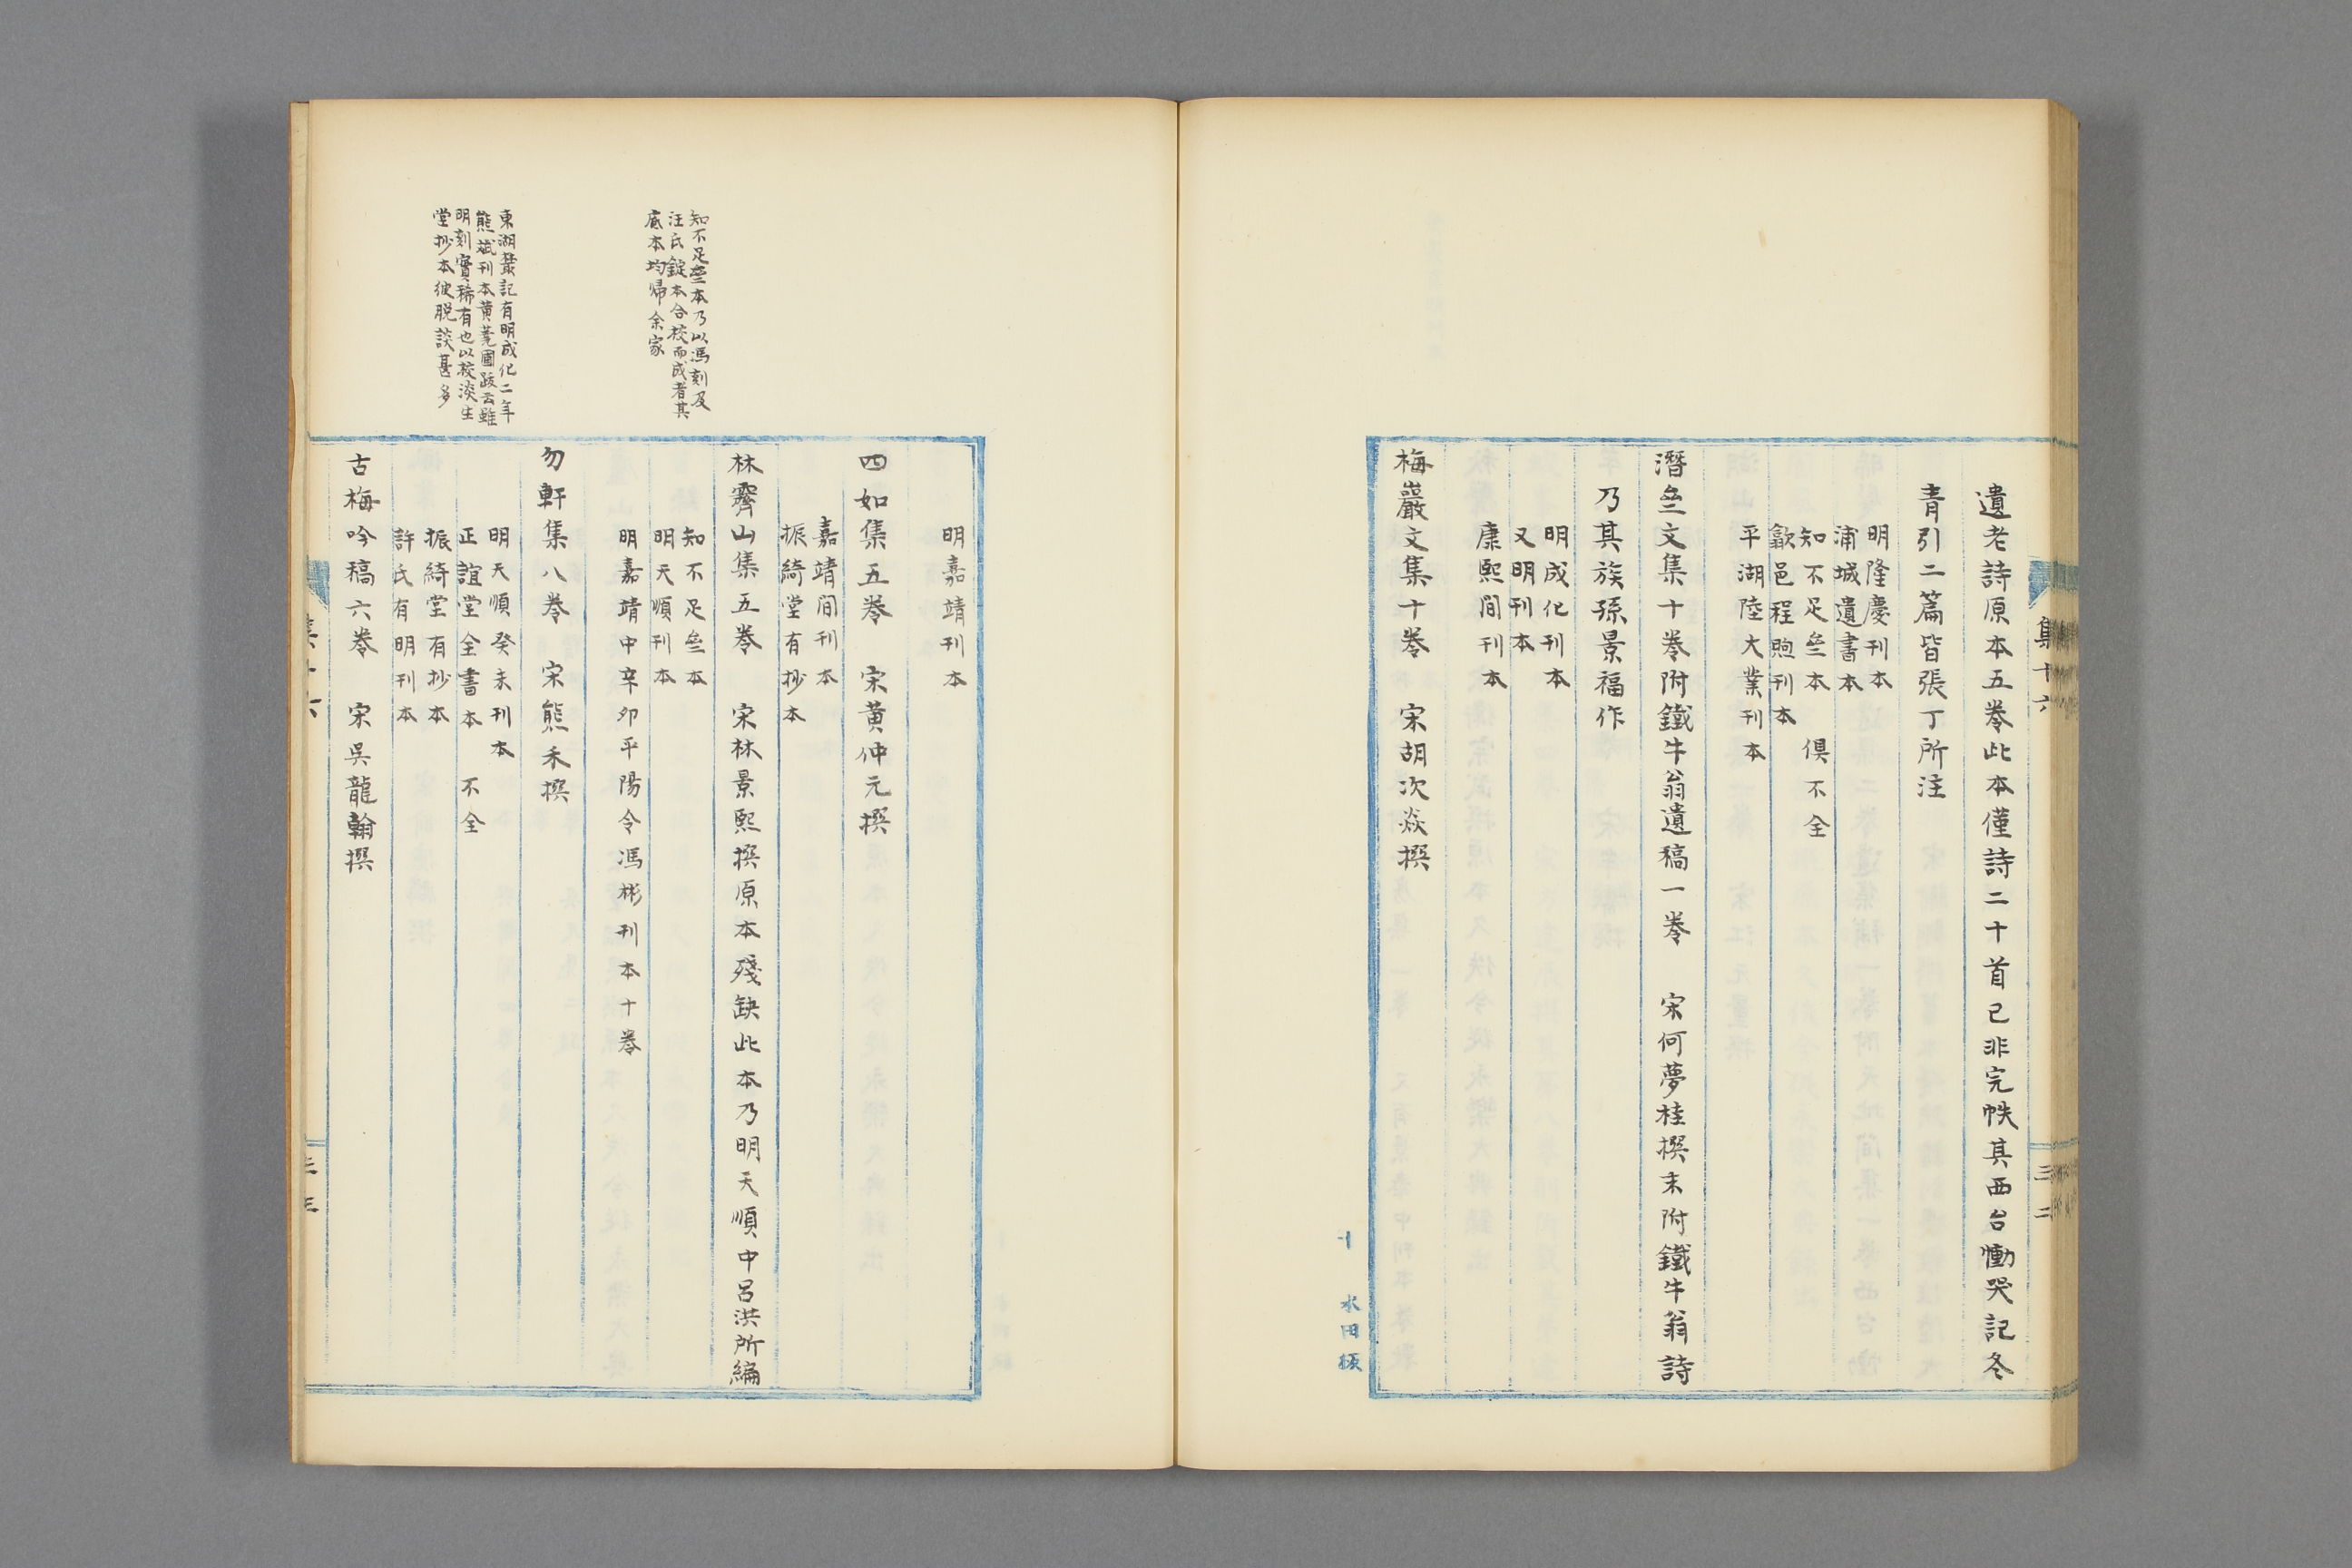 集十六
三二
遺老詩原本五卷此本僅詩二十首已非完帙其西台慟哭記冬
青引二篇皆張丁所注
明隆慶刊本
浦城遺書本
知不足坣本　俱不全
歙邑程煦刊本
平湖陸大業刊本
潛坣文集十卷附鐵牛翁遺稿一卷　宋何夢桂撰末附鐵牛翁詩
乃其族孫景福作
明成化刊本
又明刊本
康熙間刊本
梅巖文集十卷　宋胡次焱撰
十　水田坂
明嘉靖刊本
四如集五卷　宋黄仲元撰
嘉靖間刊本
振綺堂有抄本
知不足坣本乃以馮刻及
汪氏錠本合校而成者其
底本均歸余家
林霽山集五卷　宋林景熙撰原本殘缺此本乃明天順中呂洪所編
知不足坣本
明天順刊本
明嘉靖中辛卯平陽令馮彬刊本十卷
東湖叢記有明成化二年
熊斌刊本黄蕘圃跋云雖
明刻實稀有也以校淡生
堂抄本彼脱誤甚多
勿軒集八卷　宋熊禾撰
明天順癸未刊本
正誼堂全書本　不全
振綺堂有抄本
許氏有明刊本
古梅吟稿六卷　宋吳龍翰撰
集十六
三三